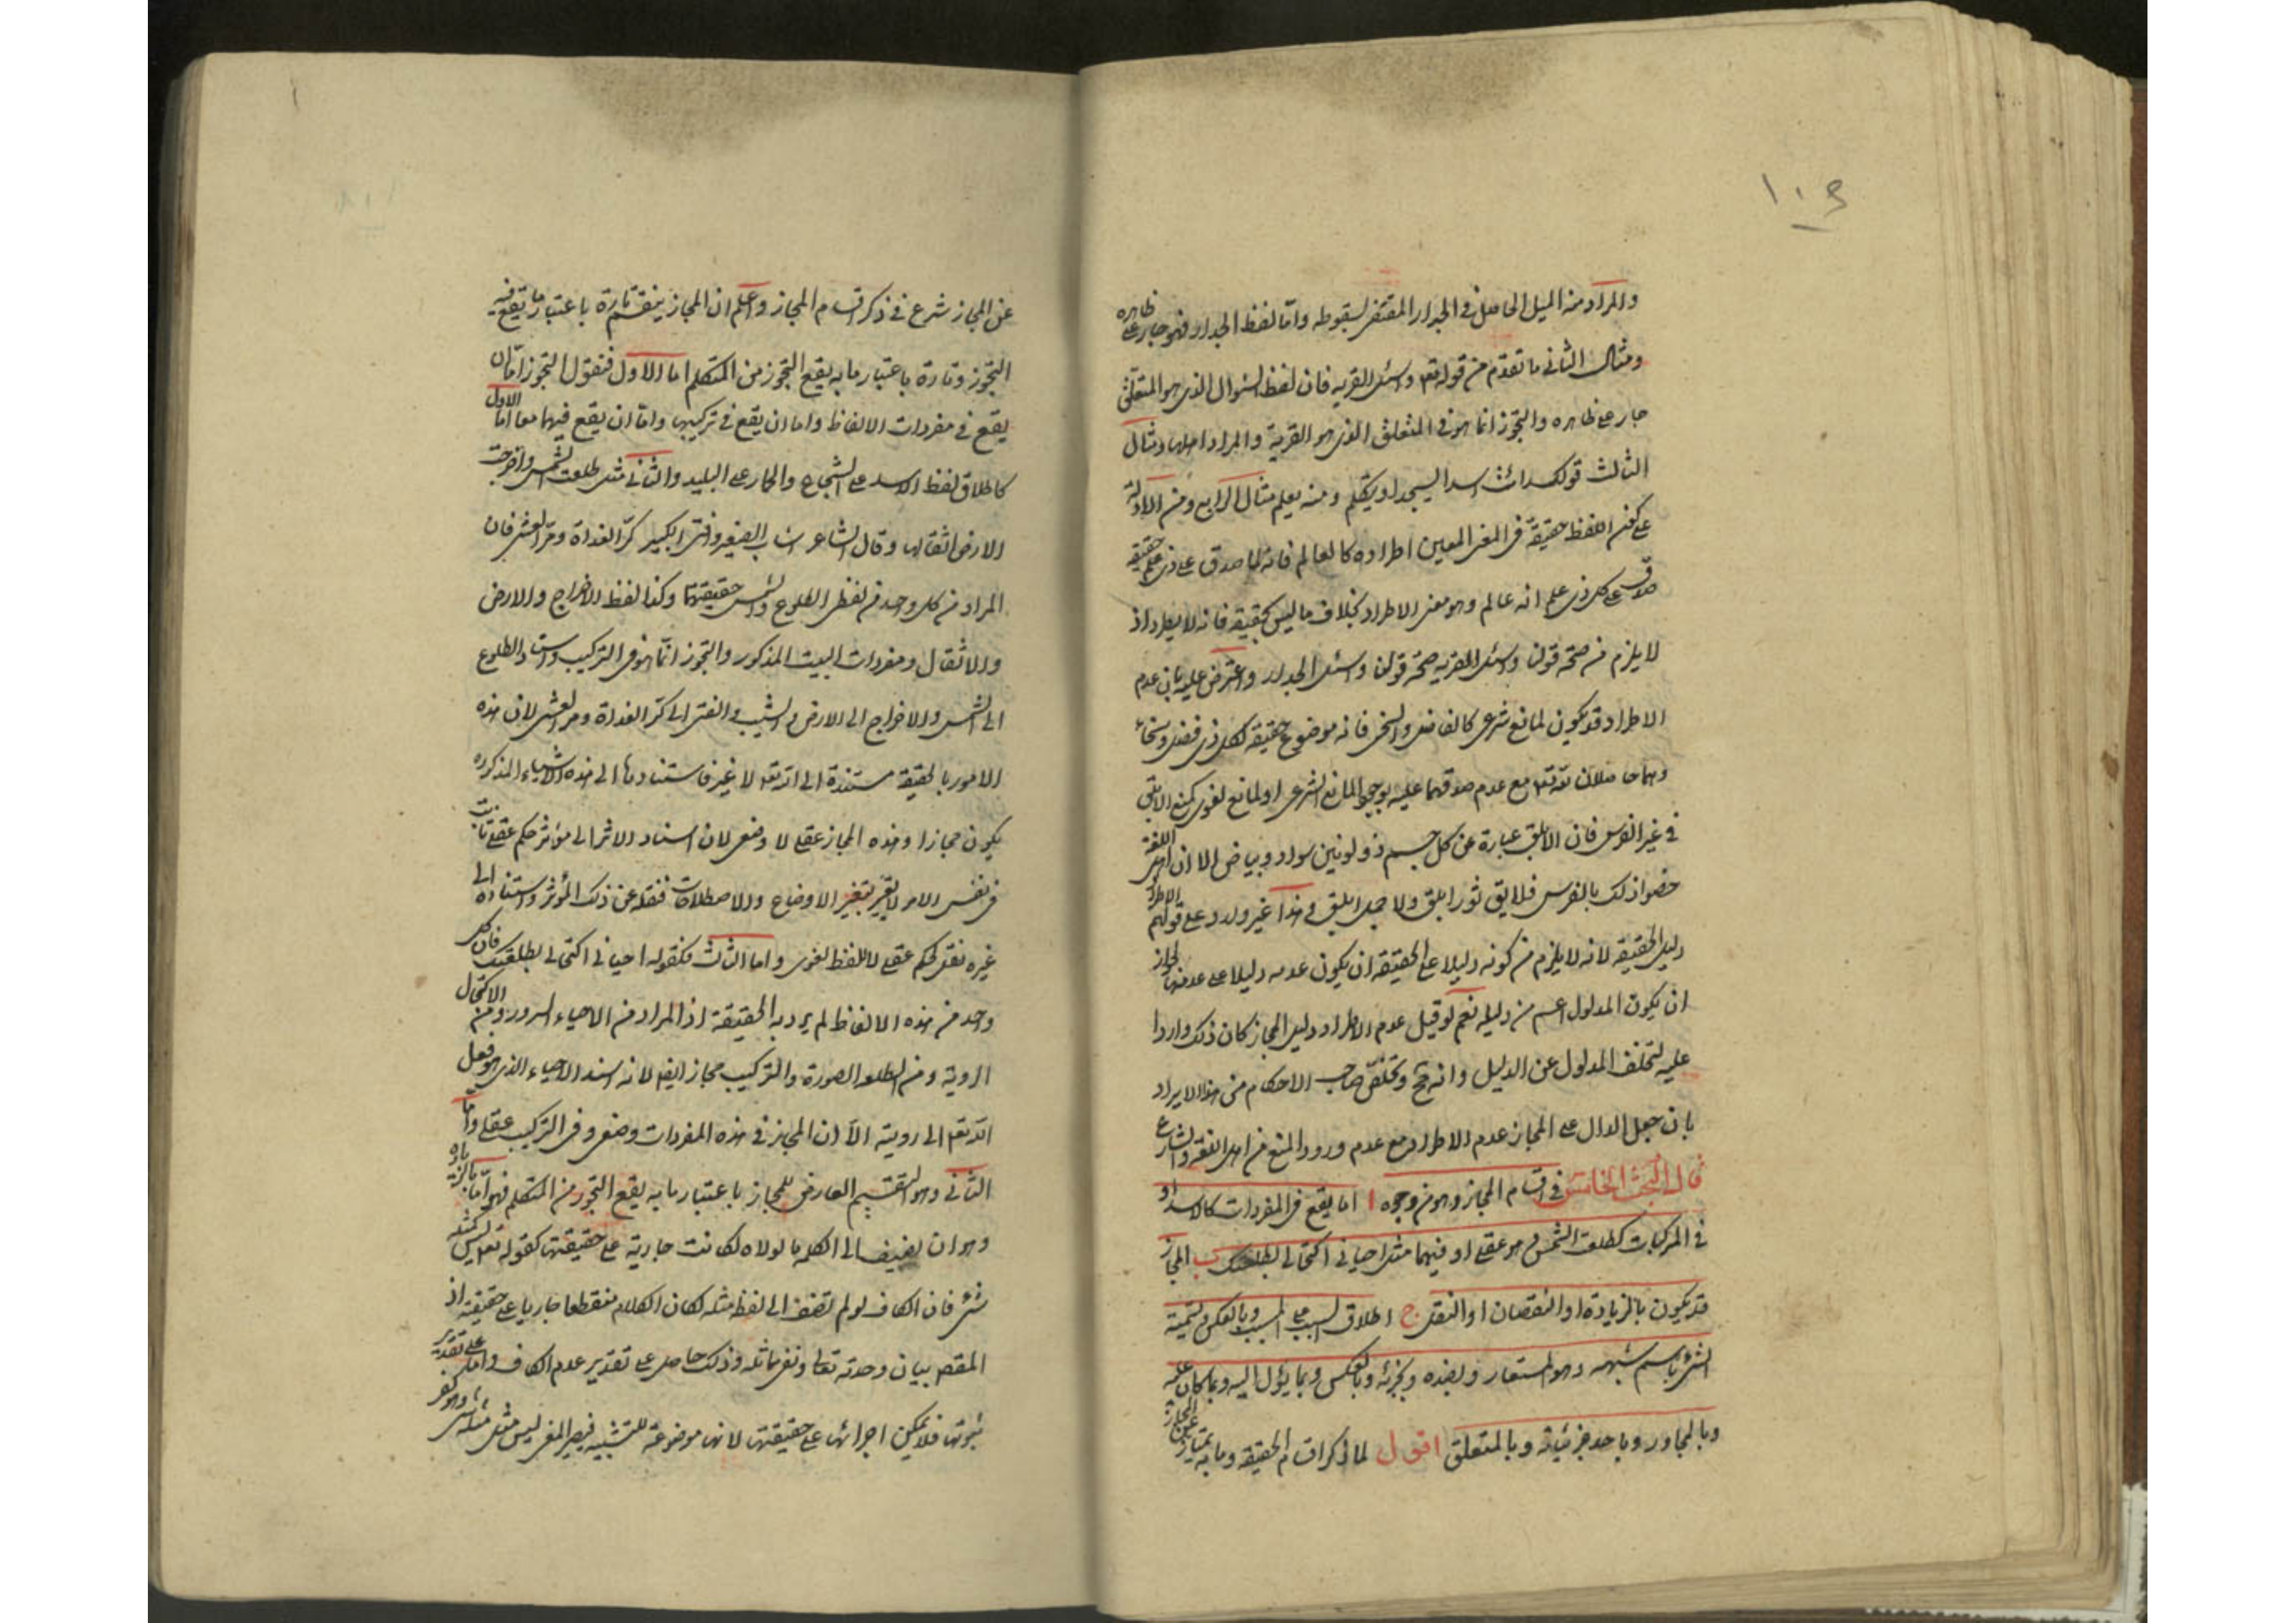 ١٠٩
والمراد منه الميل الحاصل في الجدار المقتضي لسقوطه واما لفظ الجدار فهو جار على ظاهره
ومثال الثاني ما تقدم من قوله تعه واسئل القرية فان لفظ السؤال الذي هو المتعلق
جار على ظاهره والتجوز انما هو في المتعلق الذي هو القرية والمراد اهلها ومثال
الثالث قولك رائت اسدا ليسجد او يتكلم ومنه يعلم مثال الرابع ومن الادلة
على كون اللفظ حقيقة في المعنى المعين اطراده كالعالم فانه لما صدق على ذي علم حقيقة
صدق على كل ذي علم انه عالم وهو معنى الاطراد بخلاف ما ليس بحقيقة فانه لا يطرد اذ
لا يلزم من صحة قولنا واسئل القرية صحة قولنا واسئل الجدار واعترض عليه بان عدم
الاطراد قد يكون لمانع شرعي كالفاضل والسخي فانه موضوع حقيقة لكل ذي فضل وسخاء
وهما حاصلان لله تعه مع عدم صدقهما عليه لوجود المانع الشرعي او لمانع لغوي كمنع الابلق
في غير الفرس فان الابلق عبارة عن كل جسم ذو لونين سواد وبياض الا ان اهل اللغة
خصوا ذلك بالفرس فلا يق ثور ابلق ولا جمل ابلق وهذا غير وارد على قولهم الاطراد
دليل الحقيقة لانه لا يلزم من كونه دليلا على الحقيقة ان يكون عدمه دليلا على عدمها لجواز
ان يكون المدلول اعم من دليله نعم لو قيل عدم الاطراد دليل المجاز كان ذلك واردا
عليه لتخلف المدلول عن الدليل وانه مح وتخلص صاحب الاحكام من هذا الايراد
بان جعل الدال على المجاز عدم الاطراد مع عدم ورود المنع من اهل اللغة والشارع
قال البحث الخامس في اقسام المجاز وهو من وجوه ا اما يقع في المفردات كالاسد او
في المركبات كطلعت الشمس وهو عقلي او فيهما مثل احياني اكتحالي بطلعتك ب المجاز
قد يكون بالزيادة او النقصان او النقل ج اطلاق السبب على المسبب وبالعكس وتسمية
الشئ باسم شبهه وهو المستعار وبضده وبجزئه وبالعكس وبما يؤل اليه وبما كان عليه
وبالمجاور وباحد جزئياته وبالمتعلق اقول لما ذكر اقسام الحقيقة وما به تمتاز عن المجاز
عن المجاز شرع في ذكر اقسام المجاز واعلم ان المجاز ينقسم تارة باعتبار ما يقع فيه
التجوز وتارة باعتبار ما به يقع التجوز من المتكلم اما الاول فنقول التجوز اما ان
يقع في مفردات الالفاظ واما ان يقع في تركيبها واما ان يقع فيهما معا اما الاول
كاطلاق لفظ الاسد على الشجاع والحمار على البليد والثاني مثل طلعت الشمس واخرجت
الارض اثقالها وقال الشاعر اشاب الصغير وافنى الكبير كر الغداة ومر العشي فان
المراد من كل واحد من لفظي الطلوع والشمس حقيقتهما وكذا لفظ الاخراج والارض
والاثقال ومفردات البيت المذكور والتجوز انما هو في التركيب واسناد الطلوع
الى الشمس والاخراج الى الارض والشيب والفنى الى كر الغداة ومر العشي لان هذه
الامور بالحقيقة مستندة الى الله تعه لا غير فاستنادها الى هذه الاشياء المذكوره
يكون مجازا وهذه المجاز عقلي لا وضعي لان اسناد الاثر الى مؤثر حكم عقلي ثابت
في نفس الامر لا يتغير بتغير الاوضاع والاصطلاحات فنقله عن ذلك المؤثر واستناده الى
غيره نقل لحكم عقلي لا للفظ لغوي واما الثالث فكقوله احياني اكتحالي بطلعتك فان كل
واحد من هذه الالفاظ لم يرد به الحقيقة اذ المراد من الاحياء السرور ومن الاكتحال
الروية ومن الطلعه الصورة والتركيب مجاز ايضا لانه اسند الاحياء الذي هو فعل
الله تعه الى رويته الا ان المجاز في هذه المفردات وضعي وفي التركيب عقلي واما
الثاني وهو التقسيم العارض للمجاز باعتبار ما به يقع التجوز من المتكلم فهو اما بالزيادة
وهو ان يضيف الى الكلمه ما لولاه لكانت جارية على حقيقتها كقوله تعه ليس كمثله
شئ فان الكاف لو لم تضف الى لفظ مثله لكان الكلام منقطعا جاريا على حقيقته اذ
المقصو بيان وحدته تعالى ونفي مماثله وذلك حاصل على تقدير عدم الكاف واما على تقدير
ثبوتها فلا يمكن اجرائها على حقيقتها لانها موضوعة للتشبيه فيصير المعنى ليس مثل مثله شئ وهو كفر